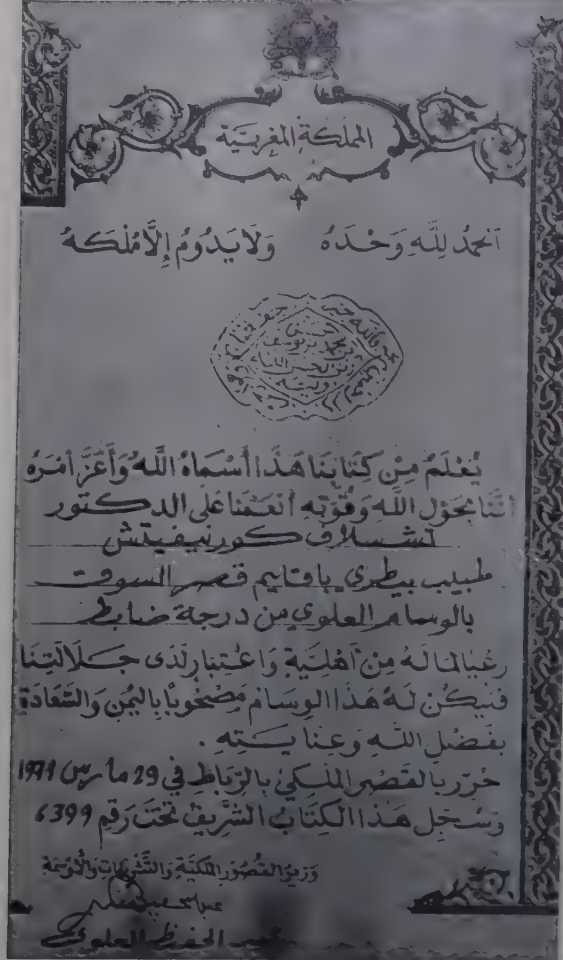 المملكة المغربية
الحمد لله وحده ولا يدوم إلا ملكه
يُعْلَمُ مِنْ كِتَابِنَا هَذَا أَسْمَاهُ اللَّهُ وَأَعَزَّ أَمْرَهُ
أننا بحول الله وقوته أنعمنا على الدكتور
تشسلاف كورنيفيتش
طبيب بيطري بإقليم قصر السوق
بالوسام العلوي من درجة ضابط
رعيا لما له من أهلية واعتبار لدى جلالتنا
فليكن له هذا الوسام مصحوبا باليمن والسعادة
بفضل الله وعنايته .
حرر بالقصر الملكي بالرباط في 29 مارس 1971
وسجل هذا الكتاب الشريف تحت رقم 6399
وزير القصور الملكية والتشريفات والأوسمة
الحفيظ العلوي